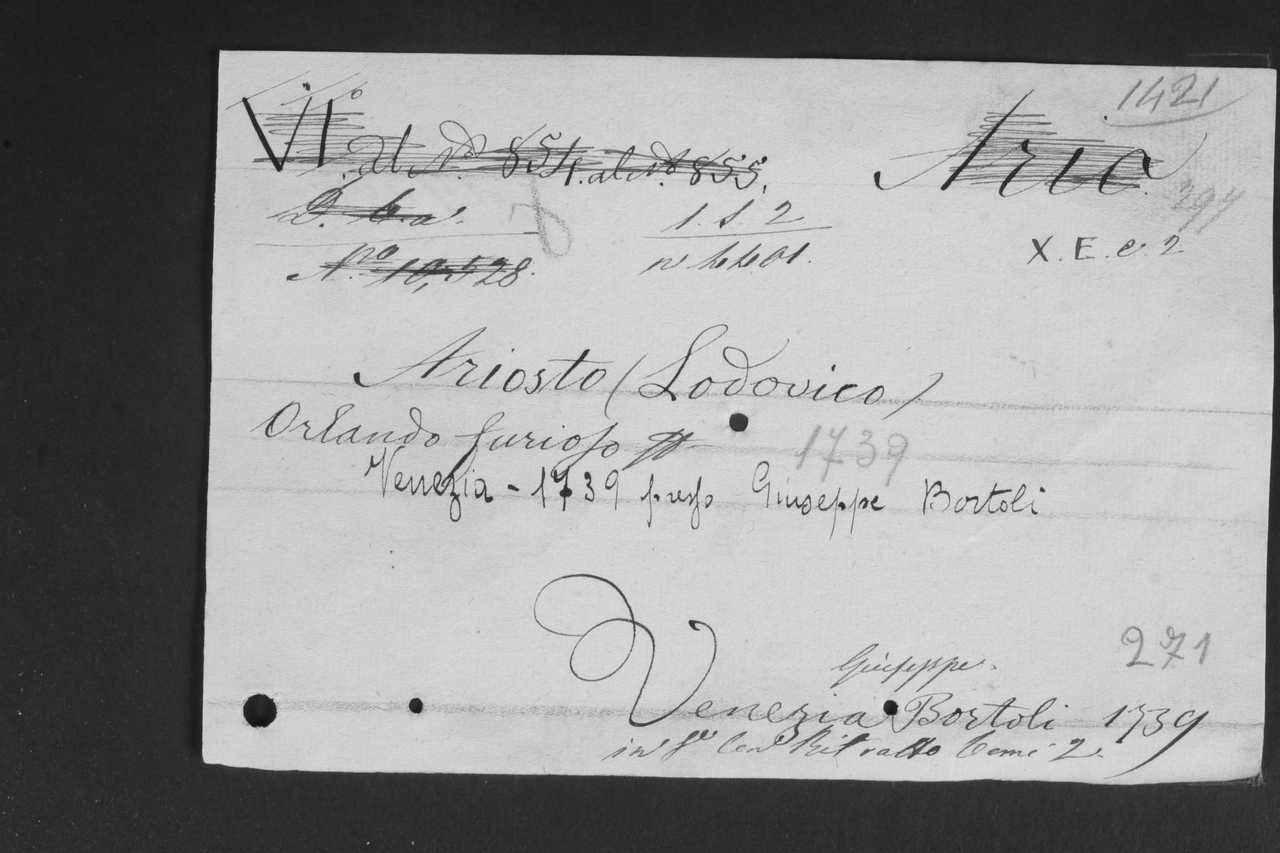 1421
VI. dal No. 854. al No. 855.
Ario
D. 6. a.
1. 1. 2
297
No. 10,528.
n 4401.
X. E. e. 2
Ariosto (Lodovico)
Orlando furioso
1739
Venezia - 1739 presso Giuseppe Bortoli
271
Giuseppe.
Venezia Bortoli 1739
in 8° con Ritratto Tomi 2.